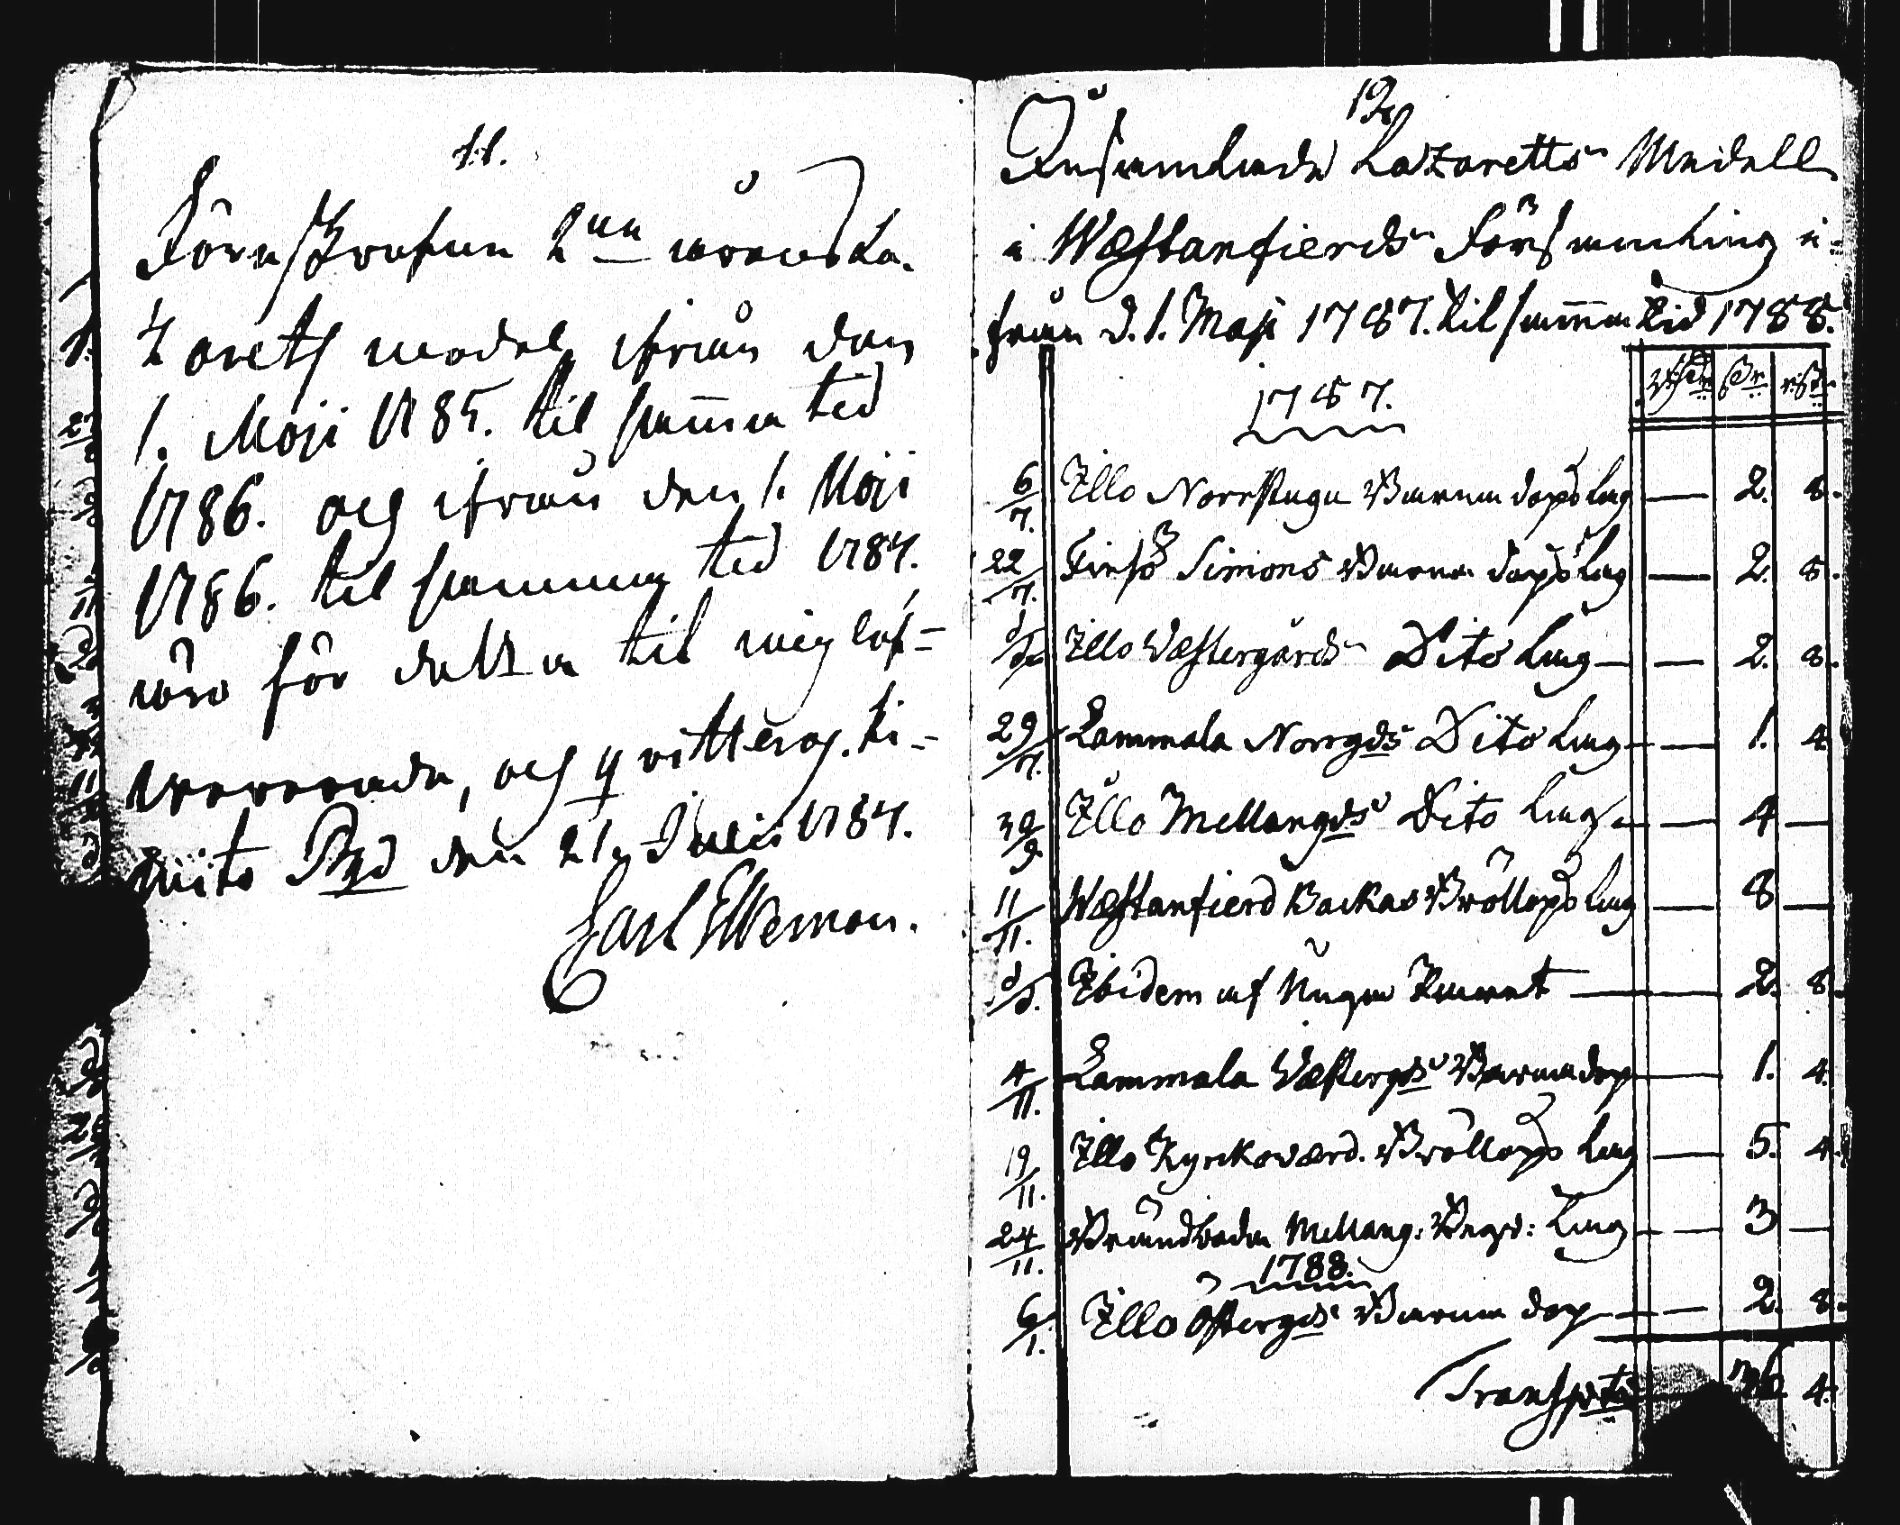 11.
Föreskrefne 2ne årens La-
zaretz medel ifrån den
1. Maji 1785. til samma tid
1786. och ifrån den 1. Maji
1786. til samma tid 1787.
äro för detta til mig lef-
vererade, och qvitteras. Ki-
mito Pgd den 21. Julii 1787.
Carl Elleman.
12
Insamlade Lazaretts Medell
i Wæstanfierds Församling i-
från d. 1. Maji 1787. til samma tid 1788.
1787.
6/7. Illo Norrstugu Barna dops lag — 2. 8.
22/7. Finsö Simons Barna dops lag — 2. 8.
d/o Illo Wæstergårds Dito lag — — 2. 8.
29/7. Lammala Norrgds Dito lag — — 1. 4.
30/9 Illo Mellangds Dito lag — — 4 —
11/11. Wæstanfierd Backas Bröllops lag — 8 —
d/o. Ibidem af Unga Paaret — 2. 8.
4/11. Lammala Wæstergds Barnadop — 1. 4.
19/11. Illo Kyrkoværd. Bröllops lag — 5. 4.
24/11. Brändboda Mellang: Begr: lag — — 3 —
1788.
6/1. Illo Östergds Barna dop — — 2. 8.
Transport 4.